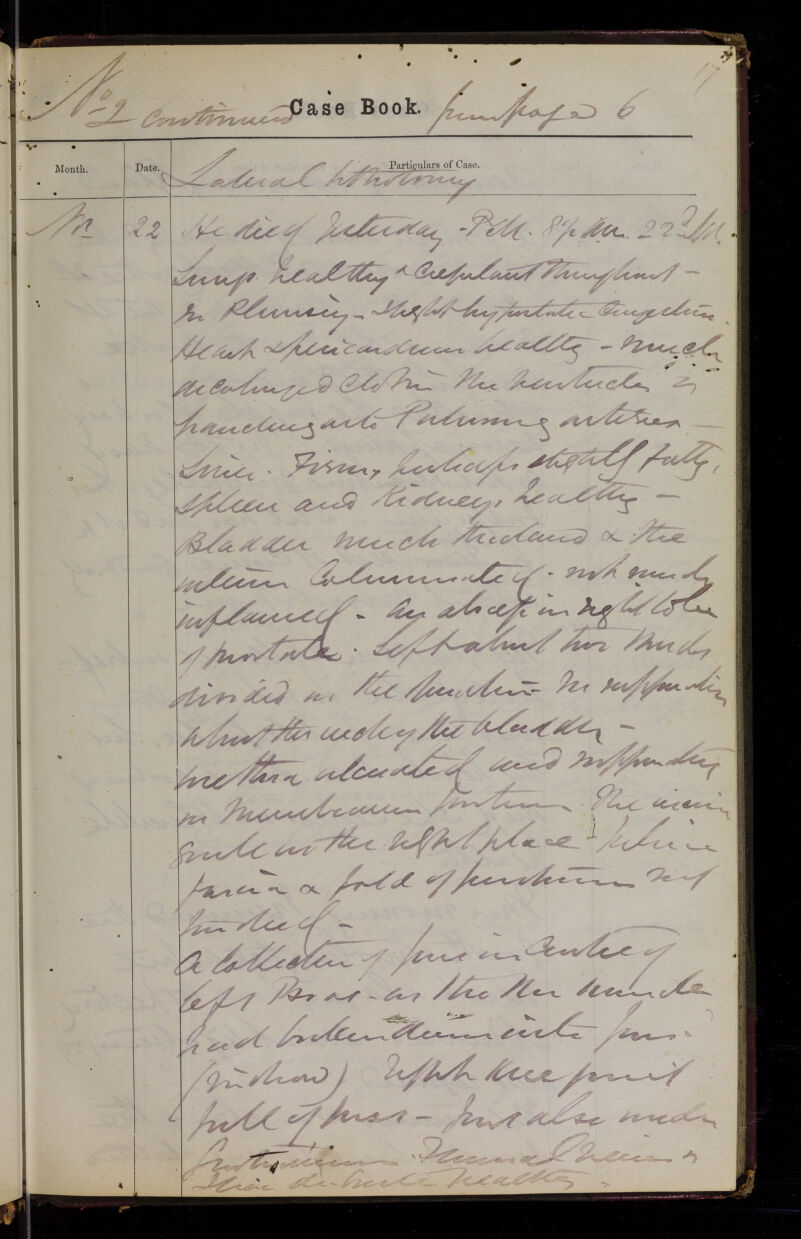 17
No 2 continued Case Book. from page 6
Month. Date. Particulars of Case.
Lateral lithotomy
Nov 22 He died yesterday - P.M. 22d
Lungs healthy & crepitant throughout -
no Pleurisy - slight hypostatic congestion.
Heart & pericardium healthy - much
decolorized clot in the ventricles &
into Pulmonary arteries -
Liver. Firm, perhaps slightly fatty,
Spleen and Kidneys healthy -
Bladder much thickened & the
interior Columnated - not much
inflamed - an abscess in right lobe
of prostate. Left about two thirds
divided in the no suppuration
about the neck of the bladder -
urethra ulcerated and suppurating
in Membranous portion. The incision
quite in the right place - Pelvic
fascia & fold of peritoneum not
touched -
A Collection of pus in Centre of
left Psoas - as tho the muscle
had broken down into pus
Right knee joint
full of puss - pus also under
Femoral veins &
Iliac healthy -